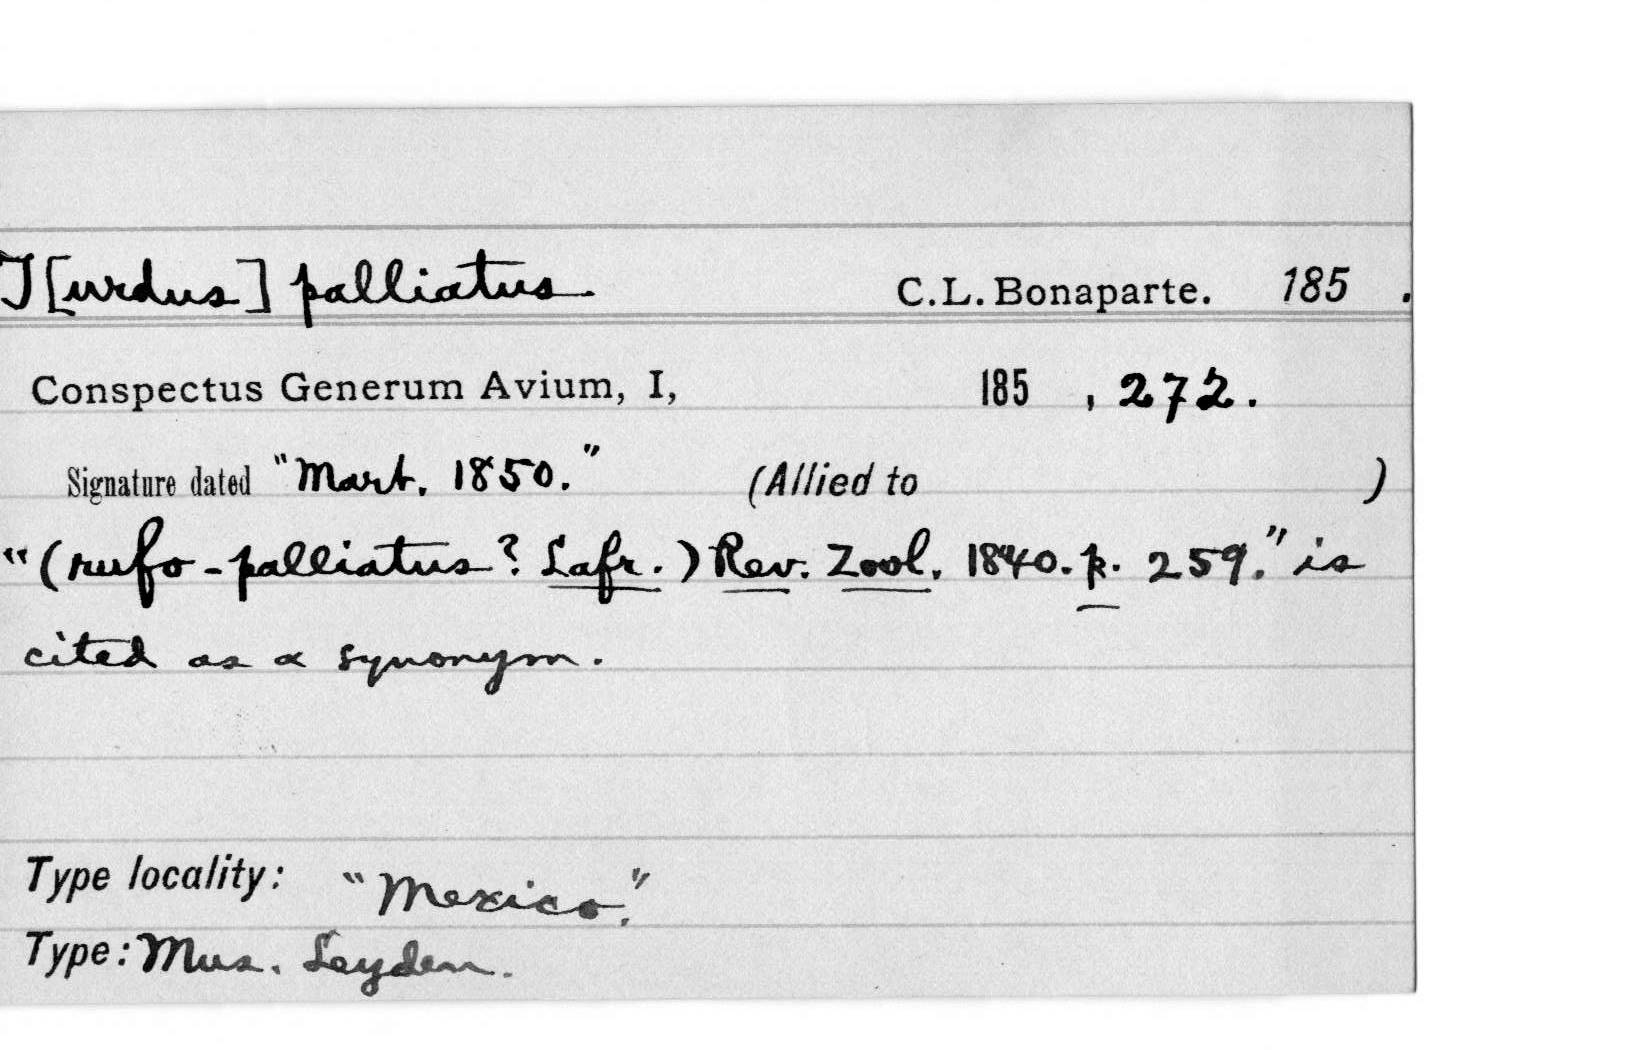 T[urdus] palliatus C.L. Bonaparte. 185 .
Conspectus Generum Avium, I, 185 , 272.
Signature dated "Mart. 1850." (Allied to )
"(rufo-palliatus? Lafr.) Rev. Zool. 1840. p. 259." is
cited as a synonym.
Type locality: "Mexico."
Type: Mus. Leyden.